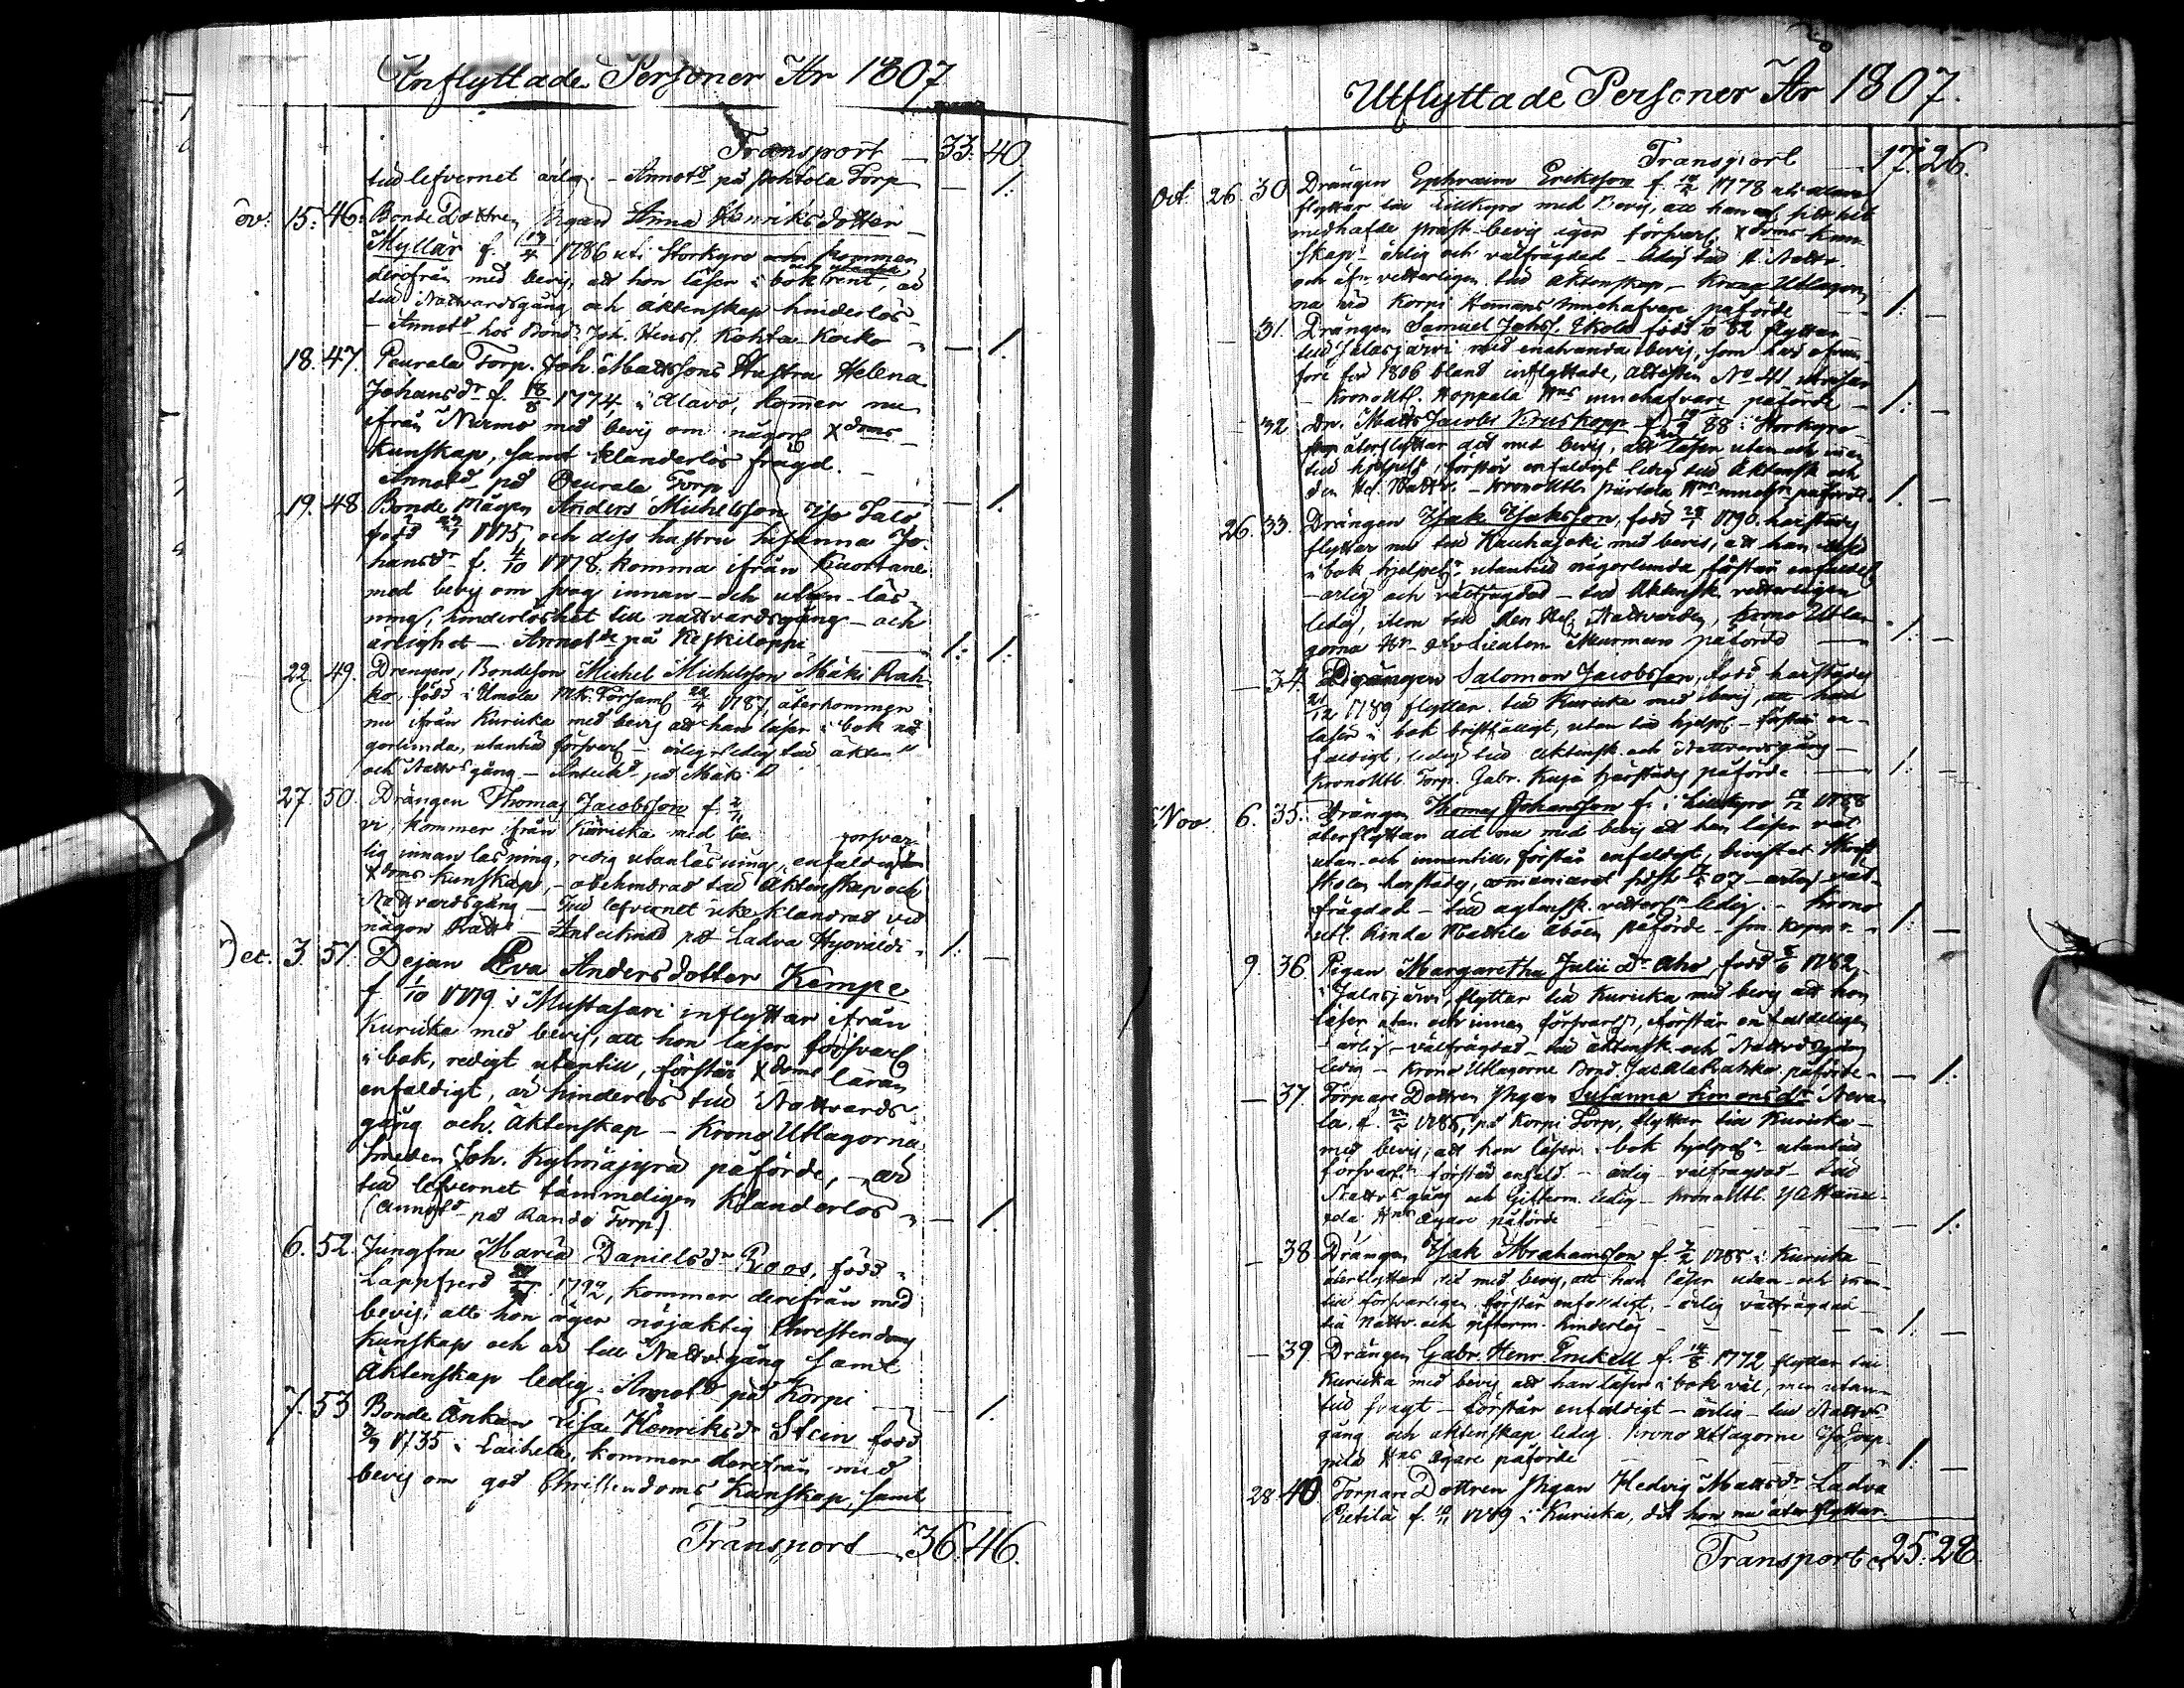 Inflyttade Personer År 1807
Transport 33. 40.
till lefvernet ärlig. - Annotd på Torp 1.
ov. 15. 46. Bonde Dottren Pigan Anna Henriksdotter
Myllär f. 17/4 1786 uti Storkyro kommer
derifrån med bevis, att hon läser i bok rent, är
till Nattvardsgång och Äktenskap hinderlös
Annotd hos Bond. Joh. Kohta Koski 1.
18. 47. Peurala Torp. Joh. Mattssons Hustru Helena
Johansdr f. 18/8 1774, i Alavo, kommer nu
ifrån Nurmo med bevis om någorl Xdoms
Kunskap, samt klanderlös frägd.
Annotd på Peurala Torp 1.
19. 48 Bonde Mågen Anders Michelsson Iso Talo
född 1775, och dess hustru Susanna Jo-
hansdr f. 4/10 1778. komma ifrån Kuortane
med bevis om svag innan- och utan-läs-
ning, hinderlöshet till nattvardsgång - och
ärlighet - Annotde på Keskiloppi 1. 1.
22. 49. Drengen, Bondeson Michel Michelsson Mäki Rah-
ko, född i Umola 22/4 1787, återkommer
nu ifrån Kuricka med bevis att han läser i bok nå-
gorlunda, utantill försvarl - ärlig, ledig till äkten
och Nattvgång - Anteckd på Mäki
27. 50. Drängen Thomas Jacobsson f. 2/11
vi, kommer ifrån Kuricka med be försvar-
lig innan läsning, redig utanläsning, enfaldig
Xdoms kunskap, - obehindrad till Äktenskap och
Nattvardsgång - Till lefvernet icke klandrad ved
någon Rätt - Antecknad på Ladva Hyövälti 1.
Dec. 3. 51. Dejan Eva Andersdotter Kempe
f. 1/10 1779 i Mustasari inflyttar ifrån
Kuricka med bevis, att hon läser försvarl
i bok, redigt utantill, förstår Xdoms läran
enfaldigt, är hinderlös till Nattvards
gång och Äktenskap - Krono Utlagorna
Smeden Joh. Kylmäjyrä påförde, - är
till lefvernet tämmeligen klanderlös
(Annotd på Rando Torp) 1.
6. 52. Jungfru Maria Danielsdr Roos, född
Lappfjerd 1792, kommer derifrån med
bevis, att hon äger nöjaktig Christendoms
Kunskap och är till Nattvgång samt
Äktenskap ledig. Annotd på Korpi 1.
7. 53 Bonde Enkan Lisa Henriksdr Stein född
2/9 1735 i Laihela, kommer derifrån med
bevis om god Christendoms Kunskap, samt
Transport 36. 46.
Utflyttade Personer År 1807.
Transport 17. 26.
Oct. 26. 30 Drängen Ephraim Eriksson f. 1778
flyttar till Lillkyro med Bevis, att han
medhafde prest-bevis äger försvarl Xdoms kun-
skap - ärlig och välfrägdad - ledig till Nattv.
och vetterligen till äktenskap - Krono Utlagor
na vid Korpi Hemans innehafvare påförde 1.
31. Drängen Samuel Jahss. Skola född 82 flyttar
till Jalasjärvi med enahanda bevis, som
före för 1806 bland inflyttade, attesten No 41 utvisar
Krono Utl. Hoppala Hns innehafvare påförde 1.
32 Dr. Matts Jacobss Kruskopp f. 88 i Storkyro
återflyttar dit med bevis, att läser utan och innan
till hjelpel, förstår enfaldigt ledig till Äktensk och
den Hel. Nattv. - Krono Utl. Hns påförde. 1.
26. 33. Drängen Isak Isaksson, född 1790. härstädes
flyttar nu till Kauhajoki med bevis, att han läser
i bok hjelpel, utantill någorlunda förstår enfaldigt
- ärlig och välfrägdad - till Äktensk vetterligen
ledig, item till den Hel. Nattvarden, Krono Utla-
gorna Murman påförde 1.
34. Drängen Salomon Jacobsson, född härstädes
21/12 1789 flyttar till Kuricka med bevis, att han
läser i bok bristfälligt, utan till hjelpl - förstår en-
faldigt, ledig till Äktensk och Nattvardsgång -
Krono Utl. Torp. Gabr. Kujä härstädes påförde 1.
Nov. 6. 35. Drängen Thomas Johansson f. i Lillkyro 1788
återflyttar dit nu med bevis att han läser väl
utan- och innantill, förstår enfaldigt, bevistat Skrift
skolen härstädes, 07 - ärlig väl-
frägdad - till äktensk. vetterl ledig. - Krono
utl. Rinda Mattila Åboen påförde 1.
9. 36 Pigan Margaretha Julii Dr Aho, född 1782,
i Jalasjärvi, flyttar till Kuricka med bevis att hon
läser utan och innan försvarl, förstår enfaldeligen
ärlig - välfrägdad - till äktensk. och Nattvdsgång
ledig - Krono Utlagorne Bond. Jac. Ala Rahko påförde 1.
37. Torpare Dottren Pigan Susanna Simonsdr Neva-
la, f. 1785, på Korpi Torp, flyttar till Kuricka -
med bevis, att hon läser i bok hjelpl - utantill
försvarl förstår enfald - ärlig - välfrägdad - till
Nattvgång och Gifterm. ledig - Krono Utl.
Hns ägare påförde 1.
38 Drängen Isak Abrahamsson f. 1785 i Kuricka
återflyttar dit med bevis, att han läser utan- och innan
till försvarligen förstår enfaldigt, - ärlig välfrägdad
till Nattv. och gifterm. hinderlös 1.
39. Drängen Gabr. Henr. Enckell f. 14/8 1772 flyttar till
Kuricka med bevis att han läser i bok väl, men utan-
till svagt - förstår enfaldigt - ärlig - till Nattvds-
gång och äktenskap ledig. Krono Utlagorne
Hns Ägare påförde 1.
28. 40. Torpare Dottren Pigan Hedvig Mattsdr Ladva
Pietilä f. 1789 i Kuricka, dit hon nu återflyttar
Transport 25. 28.